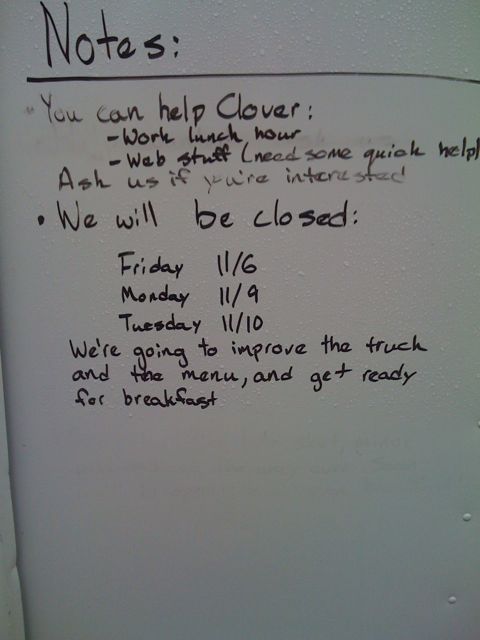 Notes:
You can help Clover:
- Work lunch hour
- Web stuff (need some quick help)
Ask us if you're interested
• We will be closed:
Friday 11/6
Monday 11/9
Tuesday 11/10
We're going to improve the truck
and the menu, and get ready
for breakfast